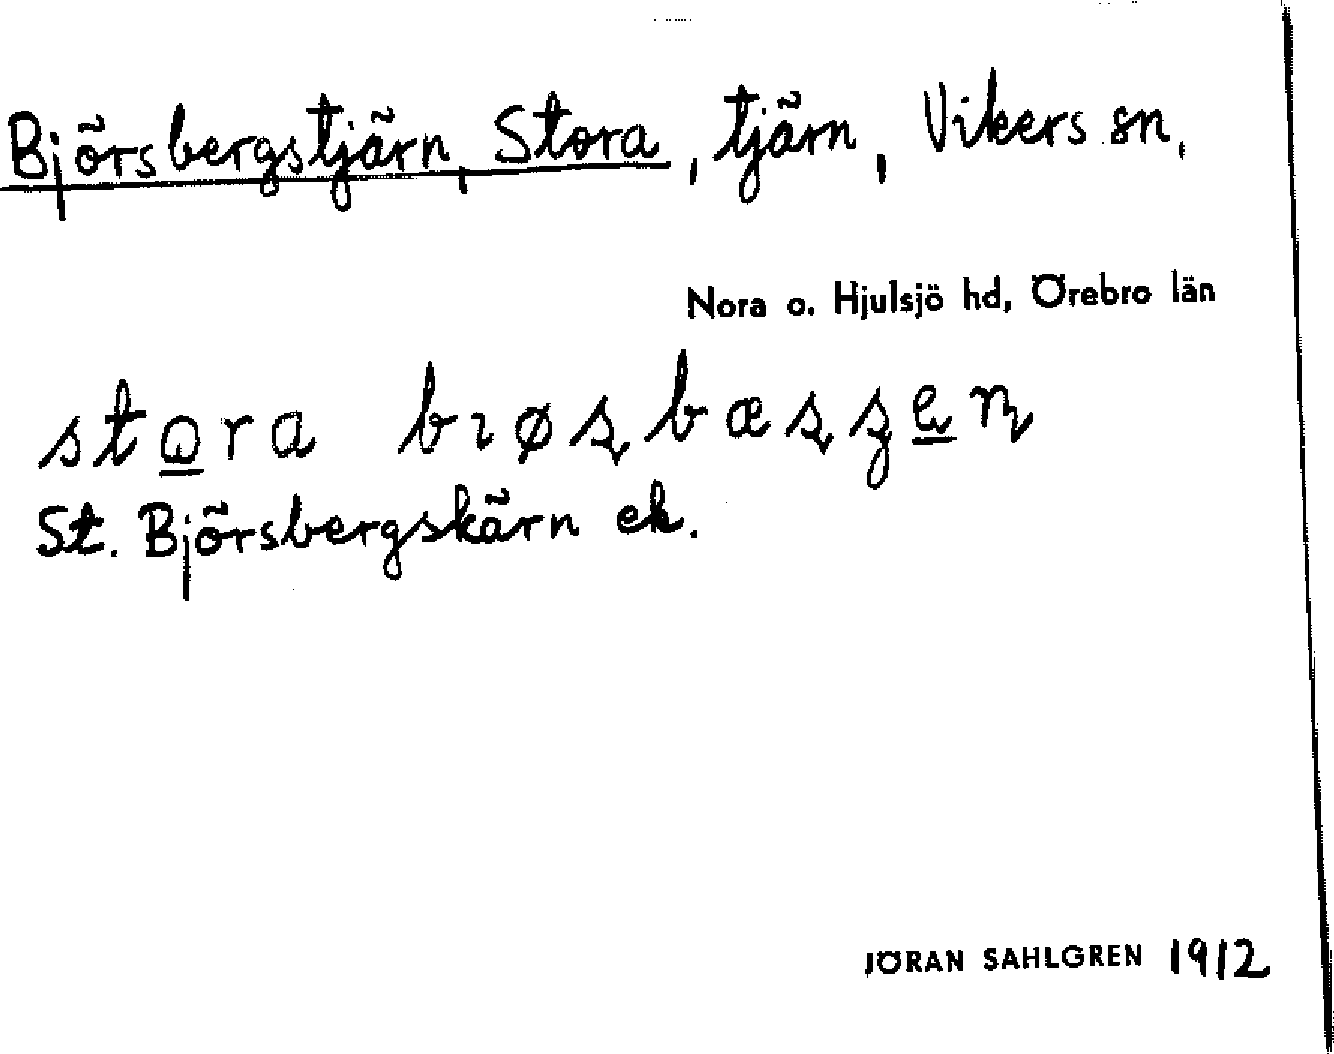 Björsbergstjärn, Stora, tjärn, Vikers sn.
Nora o. Hjulsjö hd, Örebro län
stora bıøʂbæʂʂen
St. Björsbergskärn ek.
JÖRAN SAHLGREN 1912